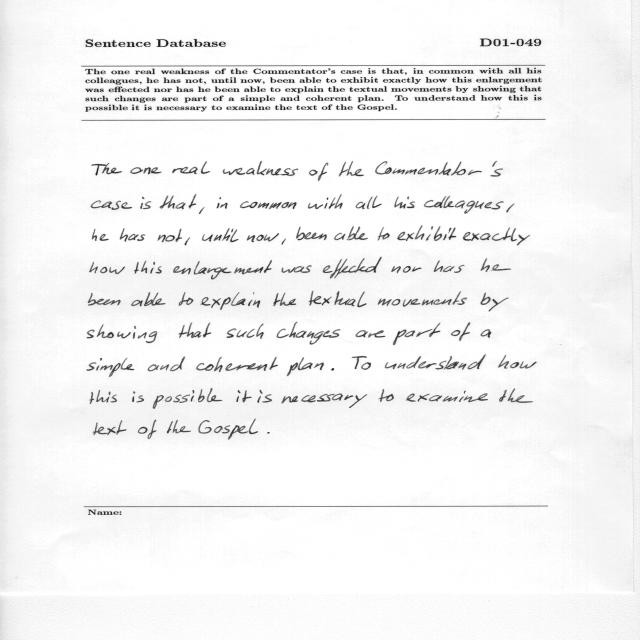 Sentence Database D01-049
The one real weakness of the Commentator's case is that, in common with all his
colleagues, he has not, until now, been able to exhibit exactly how this enlargement
was effected nor has he been able to explain the textual movements by showing that
such changes are part of a simple and coherent plan. To understand how this is
possible it is necessary to examine the text of the Gospel.
The one real weakness of the Commentator's
case is that, in common with all his colleagues,
he has not, until now, been able to exhibit exactly
how this enlargement was effected nor has he
been able to explain the textual movements by
showing that such changes are part of a
simple and coherent plan. To understand how
this is possible it is necessary to examine the
text of the Gospel.
Name: